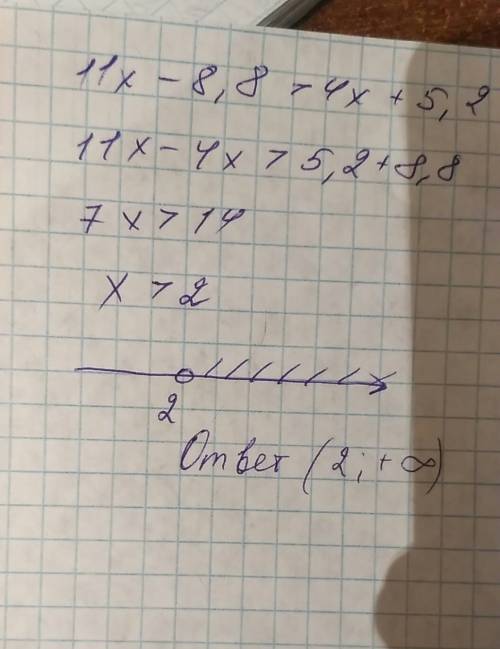 11x - 8,8 > 4x + 5,2
11x - 4x > 5,2 + 8,8
7x > 14
x > 2
2
x
Ответ (2; +∞)